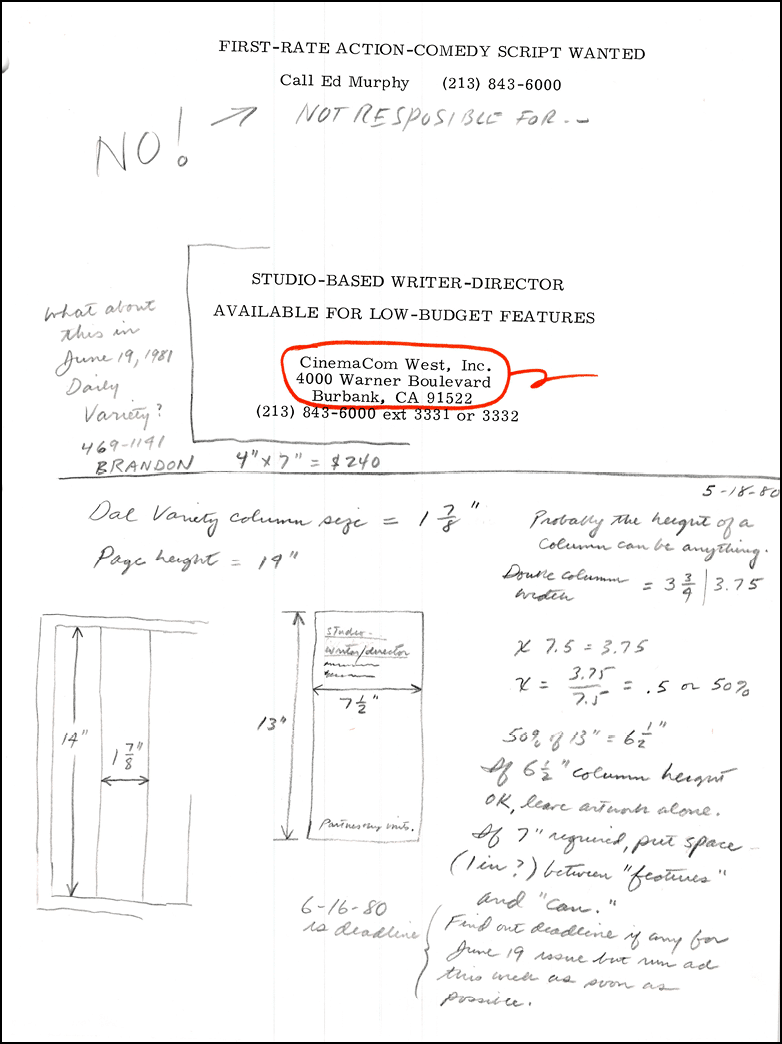 FIRST-RATE ACTION-COMEDY SCRIPT WANTED
Call Ed Murphy (213) 843-6000
NO! NOT RESPOSIBLE FOR --
STUDIO-BASED WRITER-DIRECTOR
AVAILABLE FOR LOW-BUDGET FEATURES
CinemaCom West, Inc.
4000 Warner Boulevard
Burbank, CA 91522
(213) 843-6000 ext 3331 or 3332
What about
this in
June 19, 1981
Daily
Variety?
469-1141
BRANDON
4" x 7" = $240
5-18-80
Dal Variety column size = 1 7/8"
Page height = 14"
Probably the height of a
column can be anything.
Double column
width = 3 3/4 | 3.75
14"
1 7/8"
13"
studio-
writer/director
7 1/2"
x 7.5 = 3.75
x = 3.75/7.5 = .5 or 50%
50% of 13" = 6 1/2"
If 6 1/2" column height
OK, leave artwork alone.
If 7" required, put space
(1 in?) between "features"
and "can."
6-16-80
is deadline
Find out deadline if any for
June 19 issue but run ad
this week as soon as
possible.